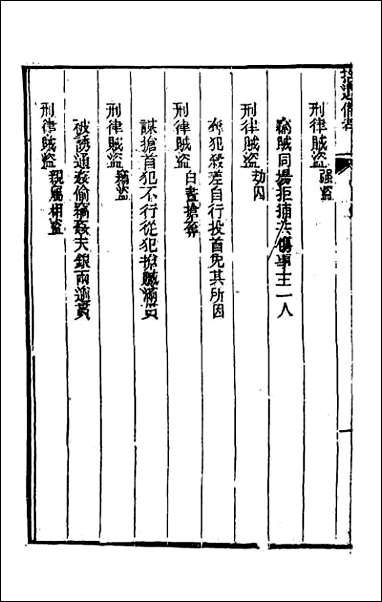 刑律賊盜 强盜
竊賊同場拒捕共傷事主一人
刑律賊盜 劫囚
奪犯殺差自行投首免其所因
刑律賊盜 白晝搶奪
謀搶首犯不行從犯搶贓滿貫
刑律賊盜 竊盜
被誘通姦偷竊姦夫銀兩逾貫
刑律賊盜 親屬相盜